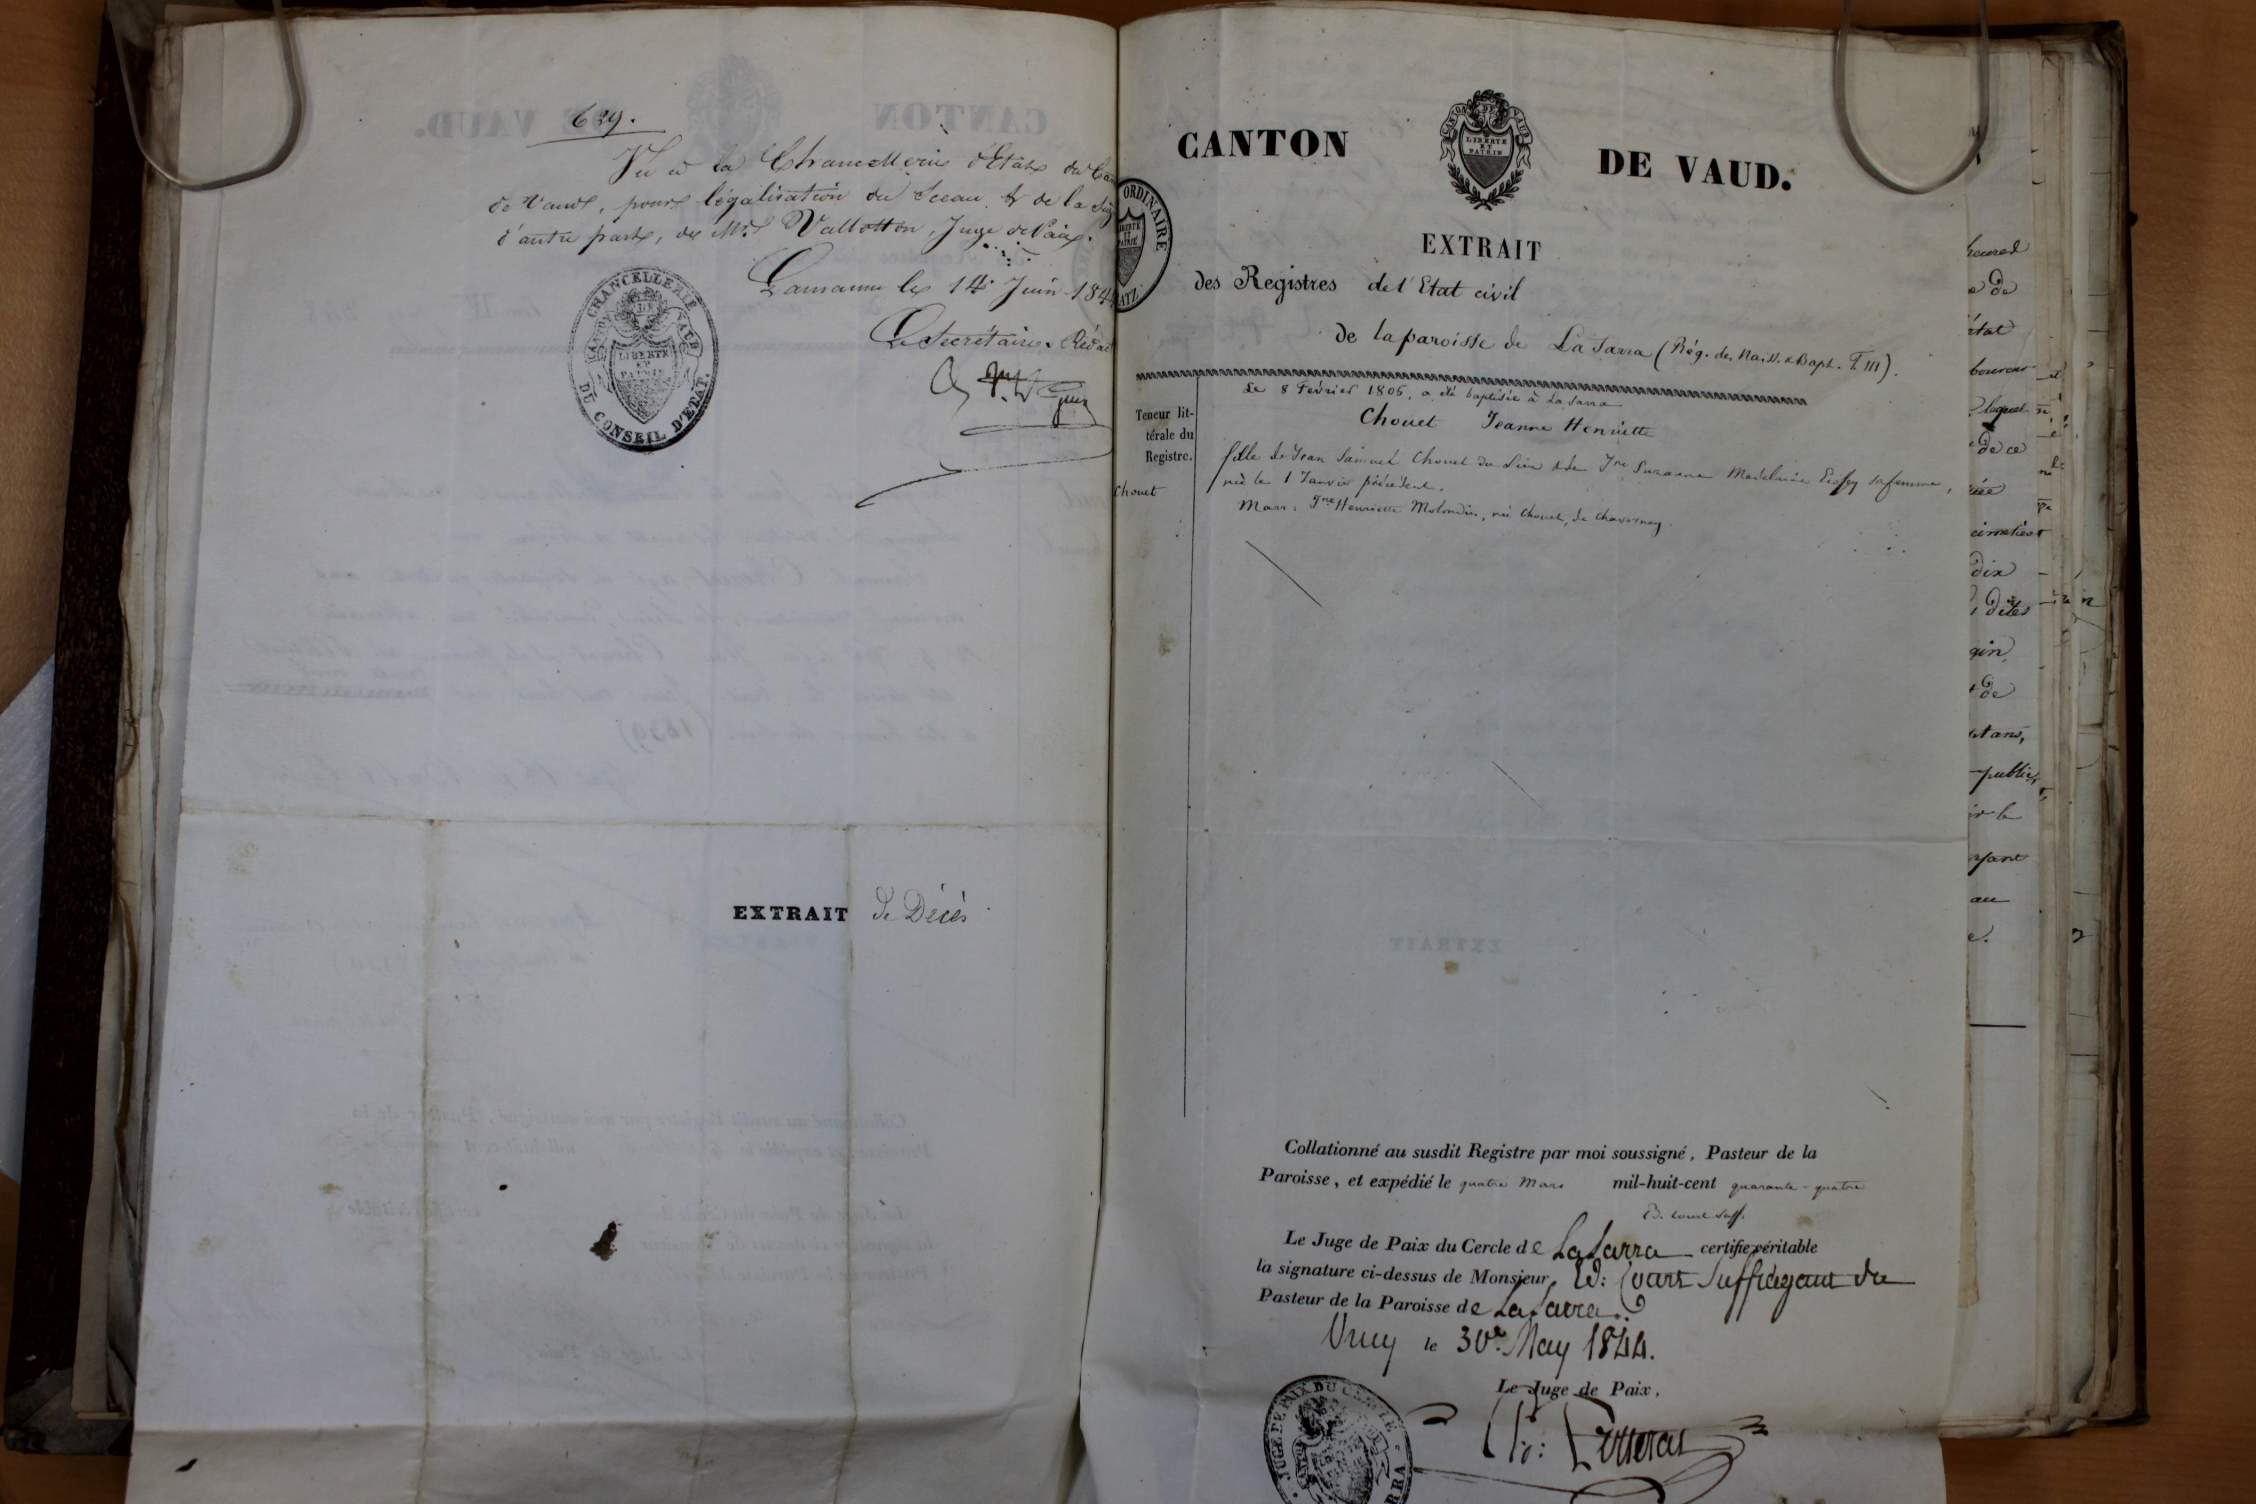 629.
Vu à la Chancellerie d'Etat du Can
de Vaud, pour légalisation du Sceau & de la Sig
d'autre part, de Mr. Vallotton, Juge de Paix.
Lausanne le 14 Juin 184
Le Secrétaire Rédac
CHANCELLERIE
CANTON DE VAUD
LIBERTÉ
ET
PATRIE
DU CONSEIL D'ETAT.
EXTRAIT de Décès
CANTON DE VAUD.
CANTON DE VAUD
LIBERTÉ
ET
PATRIE
ORDINAIRE
LIBERTÉ
ET
PATRIE
BATZ
EXTRAIT
des Registres de l'Etat civil
de la paroisse de La Sarra (Rég. des Naiss. & Bapt. T. III).
Le 8 Février 1806, a été baptisée à La Sarra
Teneur lit-
térale du
Registre.
Chouet Jeanne Henriette
fille de Jean Samuel Chouet du Lieu & de Jne Suzanne Madelaine sa femme,
née le 1 Janvier précédent.
Chouet
Marr. Jne Henriette Molondin, née Chouet, de Chavornay.
Collationné au susdit Registre par moi soussigné, Pasteur de la
Paroisse, et expédié le quatre Mars mil-huit-cent quarante-quatre
Le Juge de Paix du Cercle de LaSarra certifie véritable
la signature ci-dessus de Monsieur Ed: Suffragant du
Pasteur de la Paroisse de LaSarra.
le 30e May 1844.
Le Juge de Paix,
JUGE DE PAIX DU CERCLE